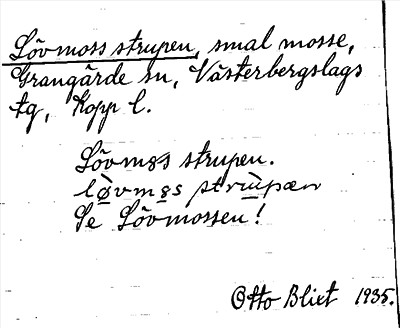 Lövmoss strupen, smal mosse,
Grangärde sn, Västerbergslags
tg, Kopp l.
Lövmɷs strupen.
lø̀vmɷs strùpæn
Se Lövmossen!
Otto Blixt 1935.